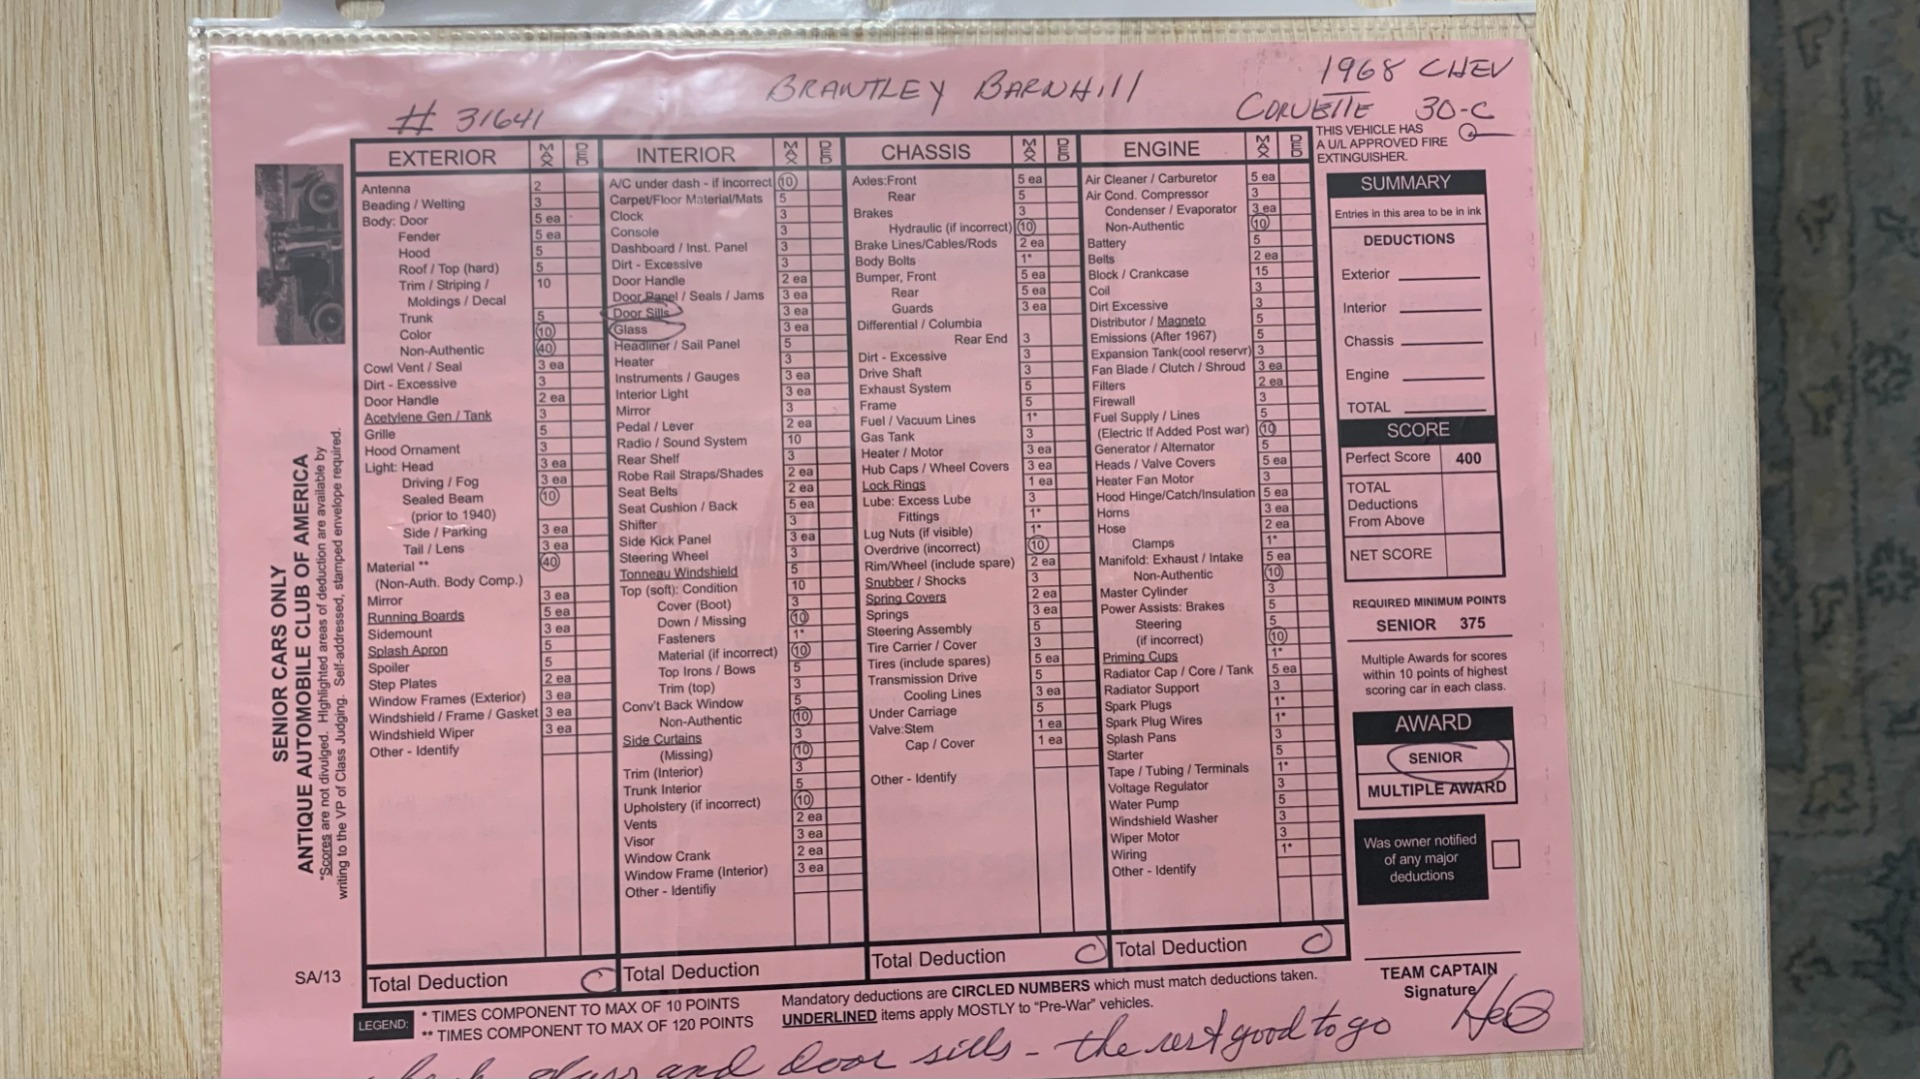 # 31641
BRANTLEY BARNHill
1968 CHEV
CORVETTE 30-C
THIS VEHICLE HAS
A U/L APPROVED FIRE
EXTINGUISHER.
SENIOR CARS ONLY
ANTIQUE AUTOMOBILE CLUB OF AMERICA
*Scores are not divulged. Highlighted areas of deduction are available by
writing to the VP of Class Judging. Self-addressed, stamped envelope required.
EXTERIOR MAX DED
Antenna 2
Beading / Welting 3
Body: Door 5 ea
Fender 5 ea
Hood 5
Roof / Top (hard) 5
Trim / Striping / 10
Moldings / Decal
Trunk 5
Color 10
Non-Authentic 40
Cowl Vent / Seal 3 ea
Dirt - Excessive 3
Door Handle 2 ea
Acetylene Gen / Tank 3
Grille 5
Hood Ornament 3
Light: Head 3 ea
Driving / Fog 3 ea
Sealed Beam 10
(prior to 1940)
Side / Parking 3 ea
Tail / Lens 3 ea
Material ** 40
(Non-Auth. Body Comp.)
Mirror 3 ea
Running Boards 5 ea
Sidemount 3 ea
Splash Apron 5
Spoiler 5
Step Plates 2 ea
Window Frames (Exterior) 3 ea
Windshield / Frame / Gasket 3 ea
Windshield Wiper 3 ea
Other - Identify
Total Deduction 0
INTERIOR MAX DED
A/C under dash - if incorrect 10
Carpet/Floor Material/Mats 5
Clock 3
Console 3
Dashboard / Inst. Panel 3
Dirt - Excessive 3
Door Handle 2 ea
Door Panel / Seals / Jams 3 ea
Door Sills 3 ea
Glass 3 ea
Headliner / Sail Panel 5
Heater 3
Instruments / Gauges 3 ea
Interior Light 3 ea
Mirror 3
Pedal / Lever 2 ea
Radio / Sound System 10
Rear Shelf 3
Robe Rail Straps/Shades 2 ea
Seat Belts 2 ea
Seat Cushion / Back 5 ea
Shifter 3
Side Kick Panel 3 ea
Steering Wheel 3
Tonneau Windshield 5
Top (soft): Condition 10
Cover (Boot) 3
Down / Missing 10
Fasteners 1*
Material (if incorrect) 10
Top Irons / Bows 5
Trim (top) 3
Conv't Back Window 5
Non-Authentic 10
Side Curtains 3
(Missing) 10
Trim (Interior) 3
Trunk Interior 5
Upholstery (if incorrect) 10
Vents 2 ea
Visor 3 ea
Window Crank 2 ea
Window Frame (Interior) 3 ea
Other - Identifiy
Total Deduction
CHASSIS MAX DED
Axles:Front 5 ea
Rear 5
Brakes 3
Hydraulic (if incorrect) 10
Brake Lines/Cables/Rods 2 ea
Body Bolts 1*
Bumper, Front 5 ea
Rear 5 ea
Guards 3 ea
Differential / Columbia
Rear End 3
Dirt - Excessive 3
Drive Shaft 3
Exhaust System 5
Frame 5
Fuel / Vacuum Lines 1*
Gas Tank 3
Heater / Motor 3 ea
Hub Caps / Wheel Covers 3 ea
Lock Rings 1 ea
Lube: Excess Lube 3
Fittings 1*
Lug Nuts (if visible) 1*
Overdrive (incorrect) 10
Rim/Wheel (include spare) 2 ea
Snubber / Shocks 3
Spring Covers 2 ea
Springs 3 ea
Steering Assembly 5
Tire Carrier / Cover 3
Tires (include spares) 5 ea
Transmission Drive 5
Cooling Lines 3 ea
Under Carriage 5
Valve:Stem 1 ea
Cap / Cover 1 ea
Other - Identify
Total Deduction 0
ENGINE MAX DED
Air Cleaner / Carburetor 5 ea
Air Cond. Compressor 3
Condenser / Evaporator 3 ea
Non-Authentic 10
Battery 5
Belts 2 ea
Block / Crankcase 15
Coil 3
Dirt Excessive 3
Distributor / Magneto 5
Emissions (After 1967) 5
Expansion Tank(cool reservr) 3
Fan Blade / Clutch / Shroud 3 ea
Filters 2 ea
Firewall 3
Fuel Supply / Lines 5
(Electric If Added Post war) 10
Generator / Alternator 5
Heads / Valve Covers 5 ea
Heater Fan Motor 3
Hood Hinge/Catch/Insulation 5 ea
Horns 3 ea
Hose 2 ea
Clamps 1*
Manifold: Exhaust / Intake 5 ea
Non-Authentic 10
Master Cylinder 3
Power Assists: Brakes 5
Steering 5
(if incorrect) 10
Priming Cups 1*
Radiator Cap / Core / Tank 5 ea
Radiator Support 3
Spark Plugs 1*
Spark Plug Wires 1*
Splash Pans 3
Starter 5
Tape / Tubing / Terminals 1*
Voltage Regulator 3
Water Pump 5
Windshield Washer 3
Wiper Motor 3
Wiring 1*
Other - Identify
Total Deduction 0
SUMMARY
Entries in this area to be in ink
DEDUCTIONS
Exterior
Interior
Chassis
Engine
TOTAL
SCORE
Perfect Score 400
TOTAL
Deductions
From Above
NET SCORE
REQUIRED MINIMUM POINTS
SENIOR 375
Multiple Awards for scores
within 10 points of highest
scoring car in each class.
AWARD
SENIOR
MULTIPLE AWARD
Was owner notified
of any major
deductions
TEAM CAPTAIN
Signature
SA/13
LEGEND: * TIMES COMPONENT TO MAX OF 10 POINTS
** TIMES COMPONENT TO MAX OF 120 POINTS
Mandatory deductions are CIRCLED NUMBERS which must match deductions taken.
UNDERLINED items apply MOSTLY to "Pre-War" vehicles.
glass and door sills - the rest good to go